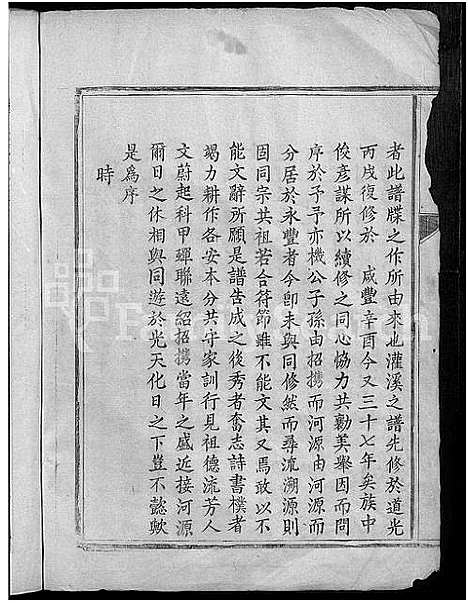 者此譜牒之作所由來也灌溪之譜先修於道光
丙戌復修於 咸豐辛酉今又三十七年矣族中
俊彥謀所以續修之同心恊力共勷美舉因而問
序於予予亦機公子孫由招携而河源由河源而
分居於永豐者今卽未與同修然而尋流溯源則
固同宗共祖若合符節雖不能文其又焉敢以不
能文辭所願是譜告成之後秀者奮志詩書樸者
竭力耕作各安本分共守家訓行見祖德流芳人
文蔚起科甲蟬聯遠紹招携當年之盛近接河源
爾日之休相與同遊於光天化日之下豈不懿歟
是為序
時